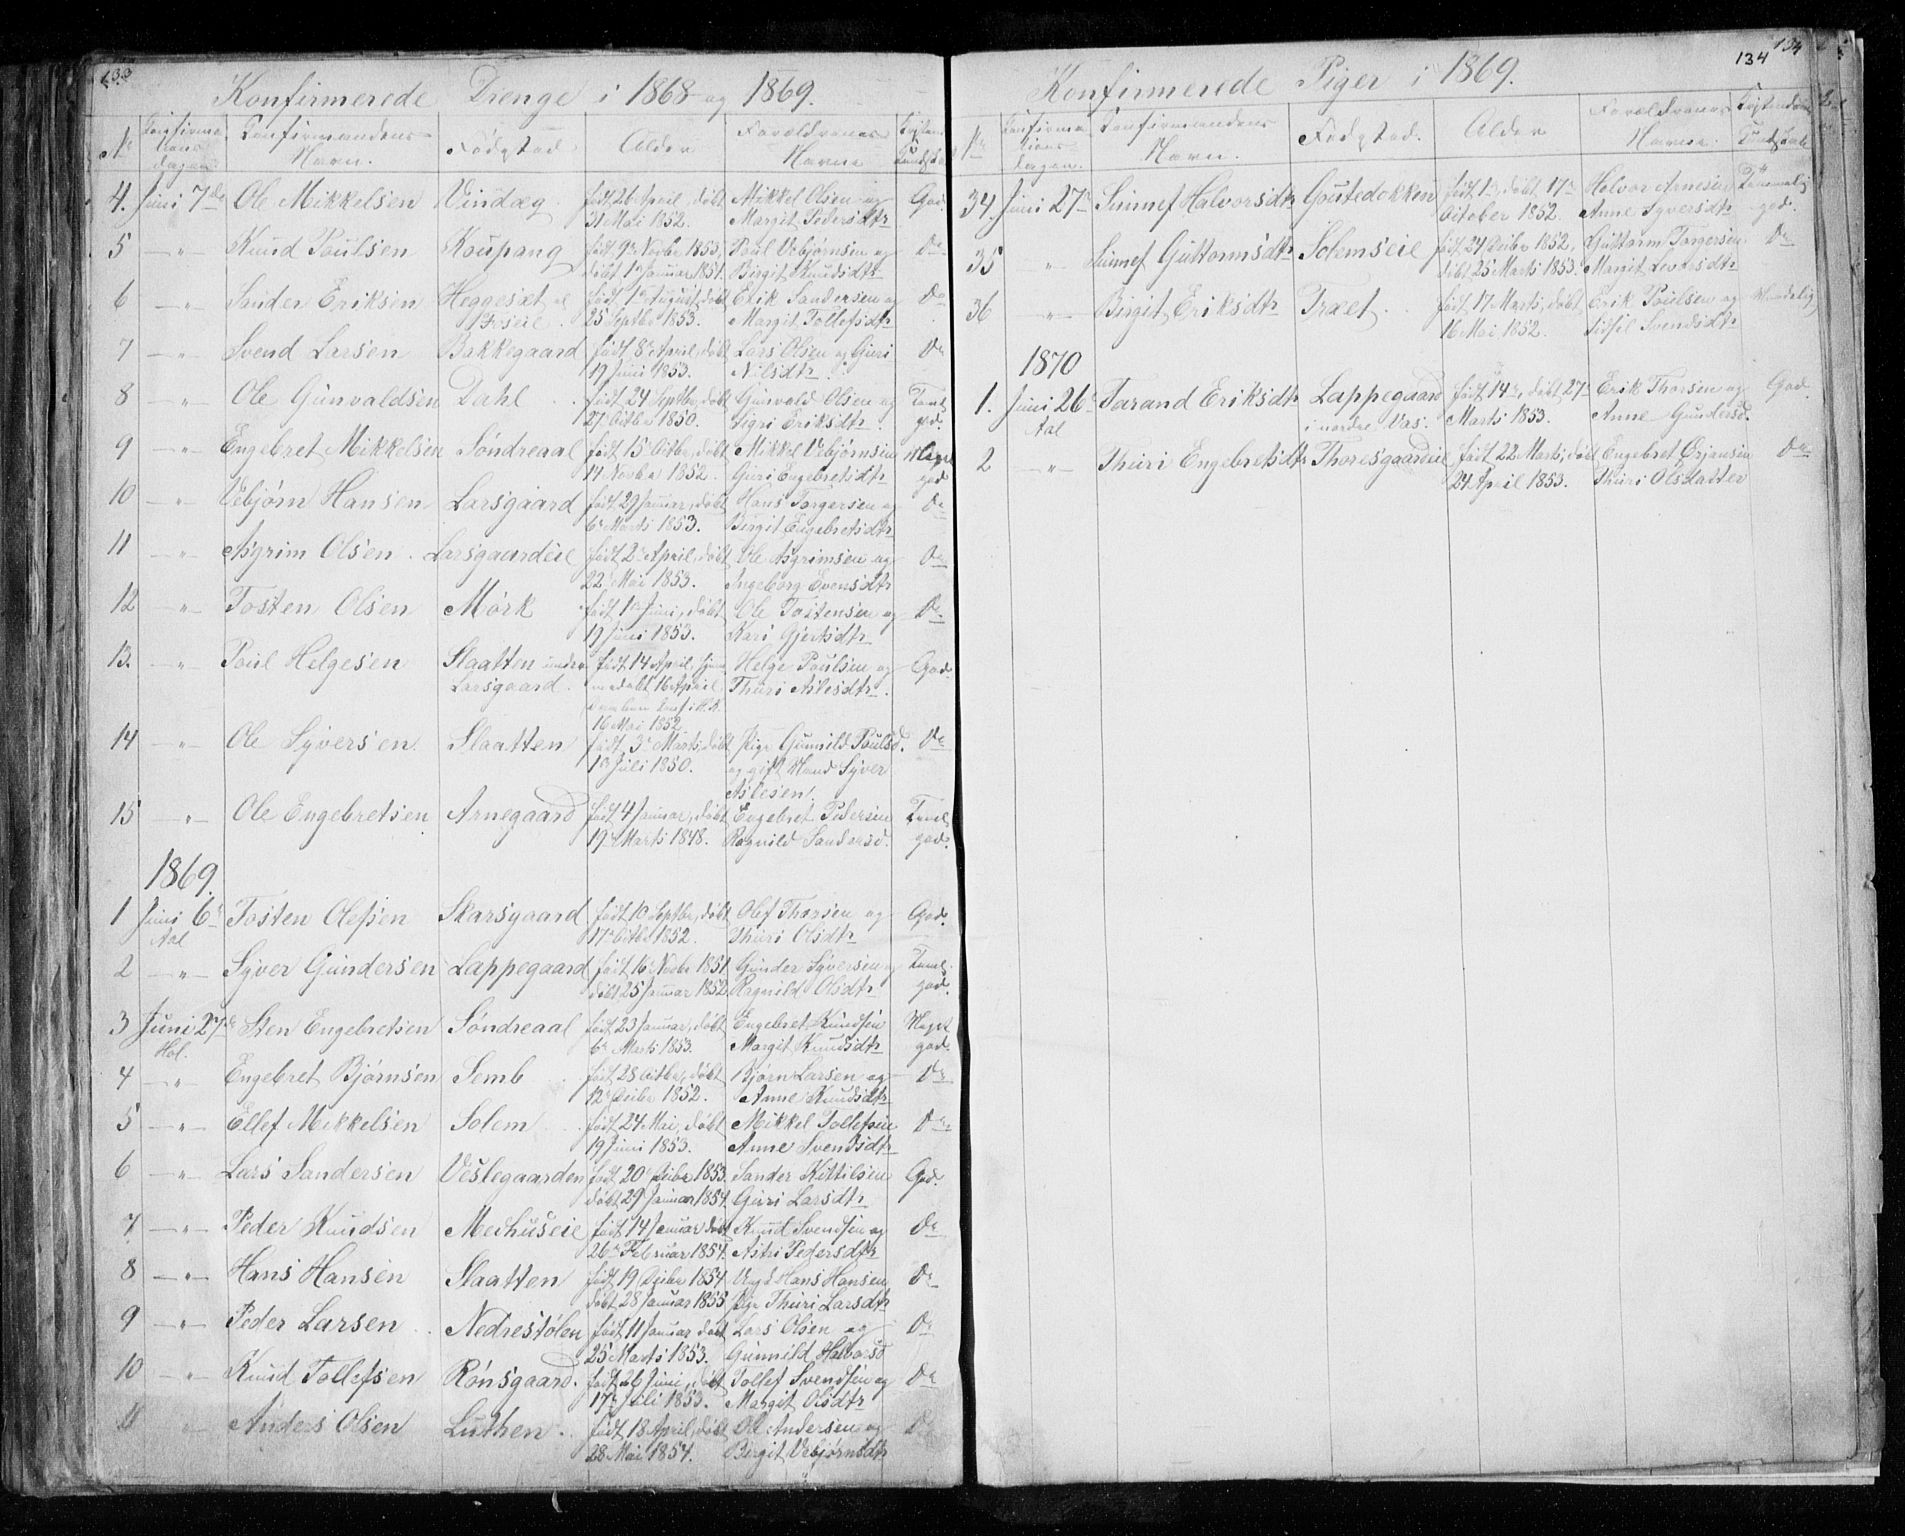 133
Konfirmerede Drenge i 1868 og 1869.
No Konfirmationsdagen Konfirmandens Navn. Födested. Alder Forældrenes Navne Kristendoms Kundskab
4. Juni 7de Ole Mikkelsen Vindæg. født 26 April, døbt Mikkel Olsen og God.
31 Mai 1852. Margit Pedersdtr
5 —"— Knud Poulsen Koupang født 9de Novbr 1853, Poul Vebjørnsen og Do
døbt 1ste Januar 1854. Birgit Knudsdtr
6 —"— Sander Eriksen Heggesæt født 1ste August, døbt Erik Sandersen og Do
25 Septbr 1853. Margit Tollefsdtr
7 —"— Svend Larsen Bakkegaard født 8de April, døbt Lars Olsen og Guri Do
19 Juni 1853. Nilsdtr
8 —"— Ole Gunvaldsen Dahl født 24 Septbr, døbt Gunvald Olsen og
27 Octbr 1850. Sigri Eriksdtr god.
9 —"— Engebret Mikkelsen Søndreaal født 15 Octbr, døbt Mikkel Vebjørnsen Meget
14 Novbr 1852. Guri Engebretsdtr god
10 —"— Vebjørn Hansen Larsgaard født 29 Januar, døbt Hans Torgersen og Do
6te Marts 1853. Birgit Engebretsdtr
11 —"— Asgrim Olsen Larsgaardeie født 2den April, døbt Ole Asgrimsen og Do
22 Mai 1853. Ingeborg Evensdtr
12 —"— Tosten Olsen Mørk født 1ste Juni, døbt Ole Tostensen og Do
19 Juni 1853. Kari Gjertsdtr
13. —"— Poul Helgesen Slaatten under født 14 April, hjem Helge Poulsen og God.
Larsgaard. medøbt 16 April Thuri Aslesdtr.
16 Mai 1852
14 —"— Ole Syversen Slaatten født 3de Marts, døbt Pige Gunnild Poulsd. Do
1ste Juli 1850. og gift Mand Syver
Aslesen.
15 —"— Ole Engebretsen Arnegaard født 4 Januar, døbt Engebret Pedersen Taal
19de Marts 1848. Ragnild Sandersd. god.
1869.
1 Juni 6te Tosten Olefsen Skarsgaard født 10 Septbr, døbt Olef Thorsen og God.
Aal 17de Octbr 1852. Thuri Olsdtr
2 —"— Syver Gundersen Lappegaard født 16de Novbr 1851 Gunder Syversen og Taal
døbt 25 Januar 1852. Ragnild Olsdtr god.
3 Juni 27de Sten Engebretsen Søndreaal født 23 Januar, døbt Engebret Knudsen Meget
Hol. 6te Marts 1853. Margit Knudsdtr god.
4 —"— Engebret Bjørnsen Semb født 28 Octbr, døbt Bjørn Larsen og Do
12 Decbr 1852. Anne Knudsdtr
5 —"— Ellef Mikkelsen Solem født 24 Mai, døbt Mikkel Tollefsen Do
19 Juni 1853. Anne Svendsdtr
6 —"— Lars Sandersen Veslegaarden født 20 Decbr 1853. Sander Kittilsen God.
døbt 29 Januar 1854 Guri Larsdtr
7 —"— Peder Knudsen Medhuseie født 14 Januar døbt Knud Svendsen og Do
26de Februar 1854. Astri Pedersdtr
8 —"— Hans Hansen Slaatten født 19 Decbr 1854 Ungk. Hans Hansen Do
døbt 28 Januar 1855 Pige Thuri Larsdtr
9 —"— Peder Larsen Nedrestølen født 11 Januar døbt Lars Olsen og Do
25 Marts 1853. Gunnild Halvorsd
10 —"— Knud Tollefsen Rønsgaard. født 26 Juni, døbt Tollef Svendsen og Do
17de Juli 1853. Margit Olsdtr
11 " Anders Olsen Luthen født 18 April, døbt Ole Andersen og Do
28 Mai 1854. Birgit Vebjørnsdtr
134 134
Konfirmerede Piger i 1869.
No Konfirmationsdagen. Konfirmandens Navn. Födested. Alder Forældrenes Navne. Kristendoms Kundskab
34. Juni 27de Sünnef Halvorsdtr Goutedokken født 1ste, døbt 17de Halvor Arnesen Temmelig
October 1852. Anne Syversdtr god.
35 " Sünnef Guttormsdtr Solemseie født 24 Decbr 1852, Guttorm Torgersen Do
døbt 25 Marts 1853. Margit Levorsdtr
36 —"— Birgit Eriksdtr Træet født 17 Marts, døbt Erik Poulsen og Maadelig
16 Mai 1852. Sidsel Svendsdtr
1870
1. Juni 26de Tarand Eriksdtr Lappegaard født 14de, døbt 27de Erik Thorsen og God.
Aal i nordre Vas. Marts 1853. Anne Gundersd.
2 —"— Thuri Engebretsdtr Thoresgaardeie født 22 Marts, døbt Engebret Ørjansen Do
24 April 1853. Thuri Olsdatter